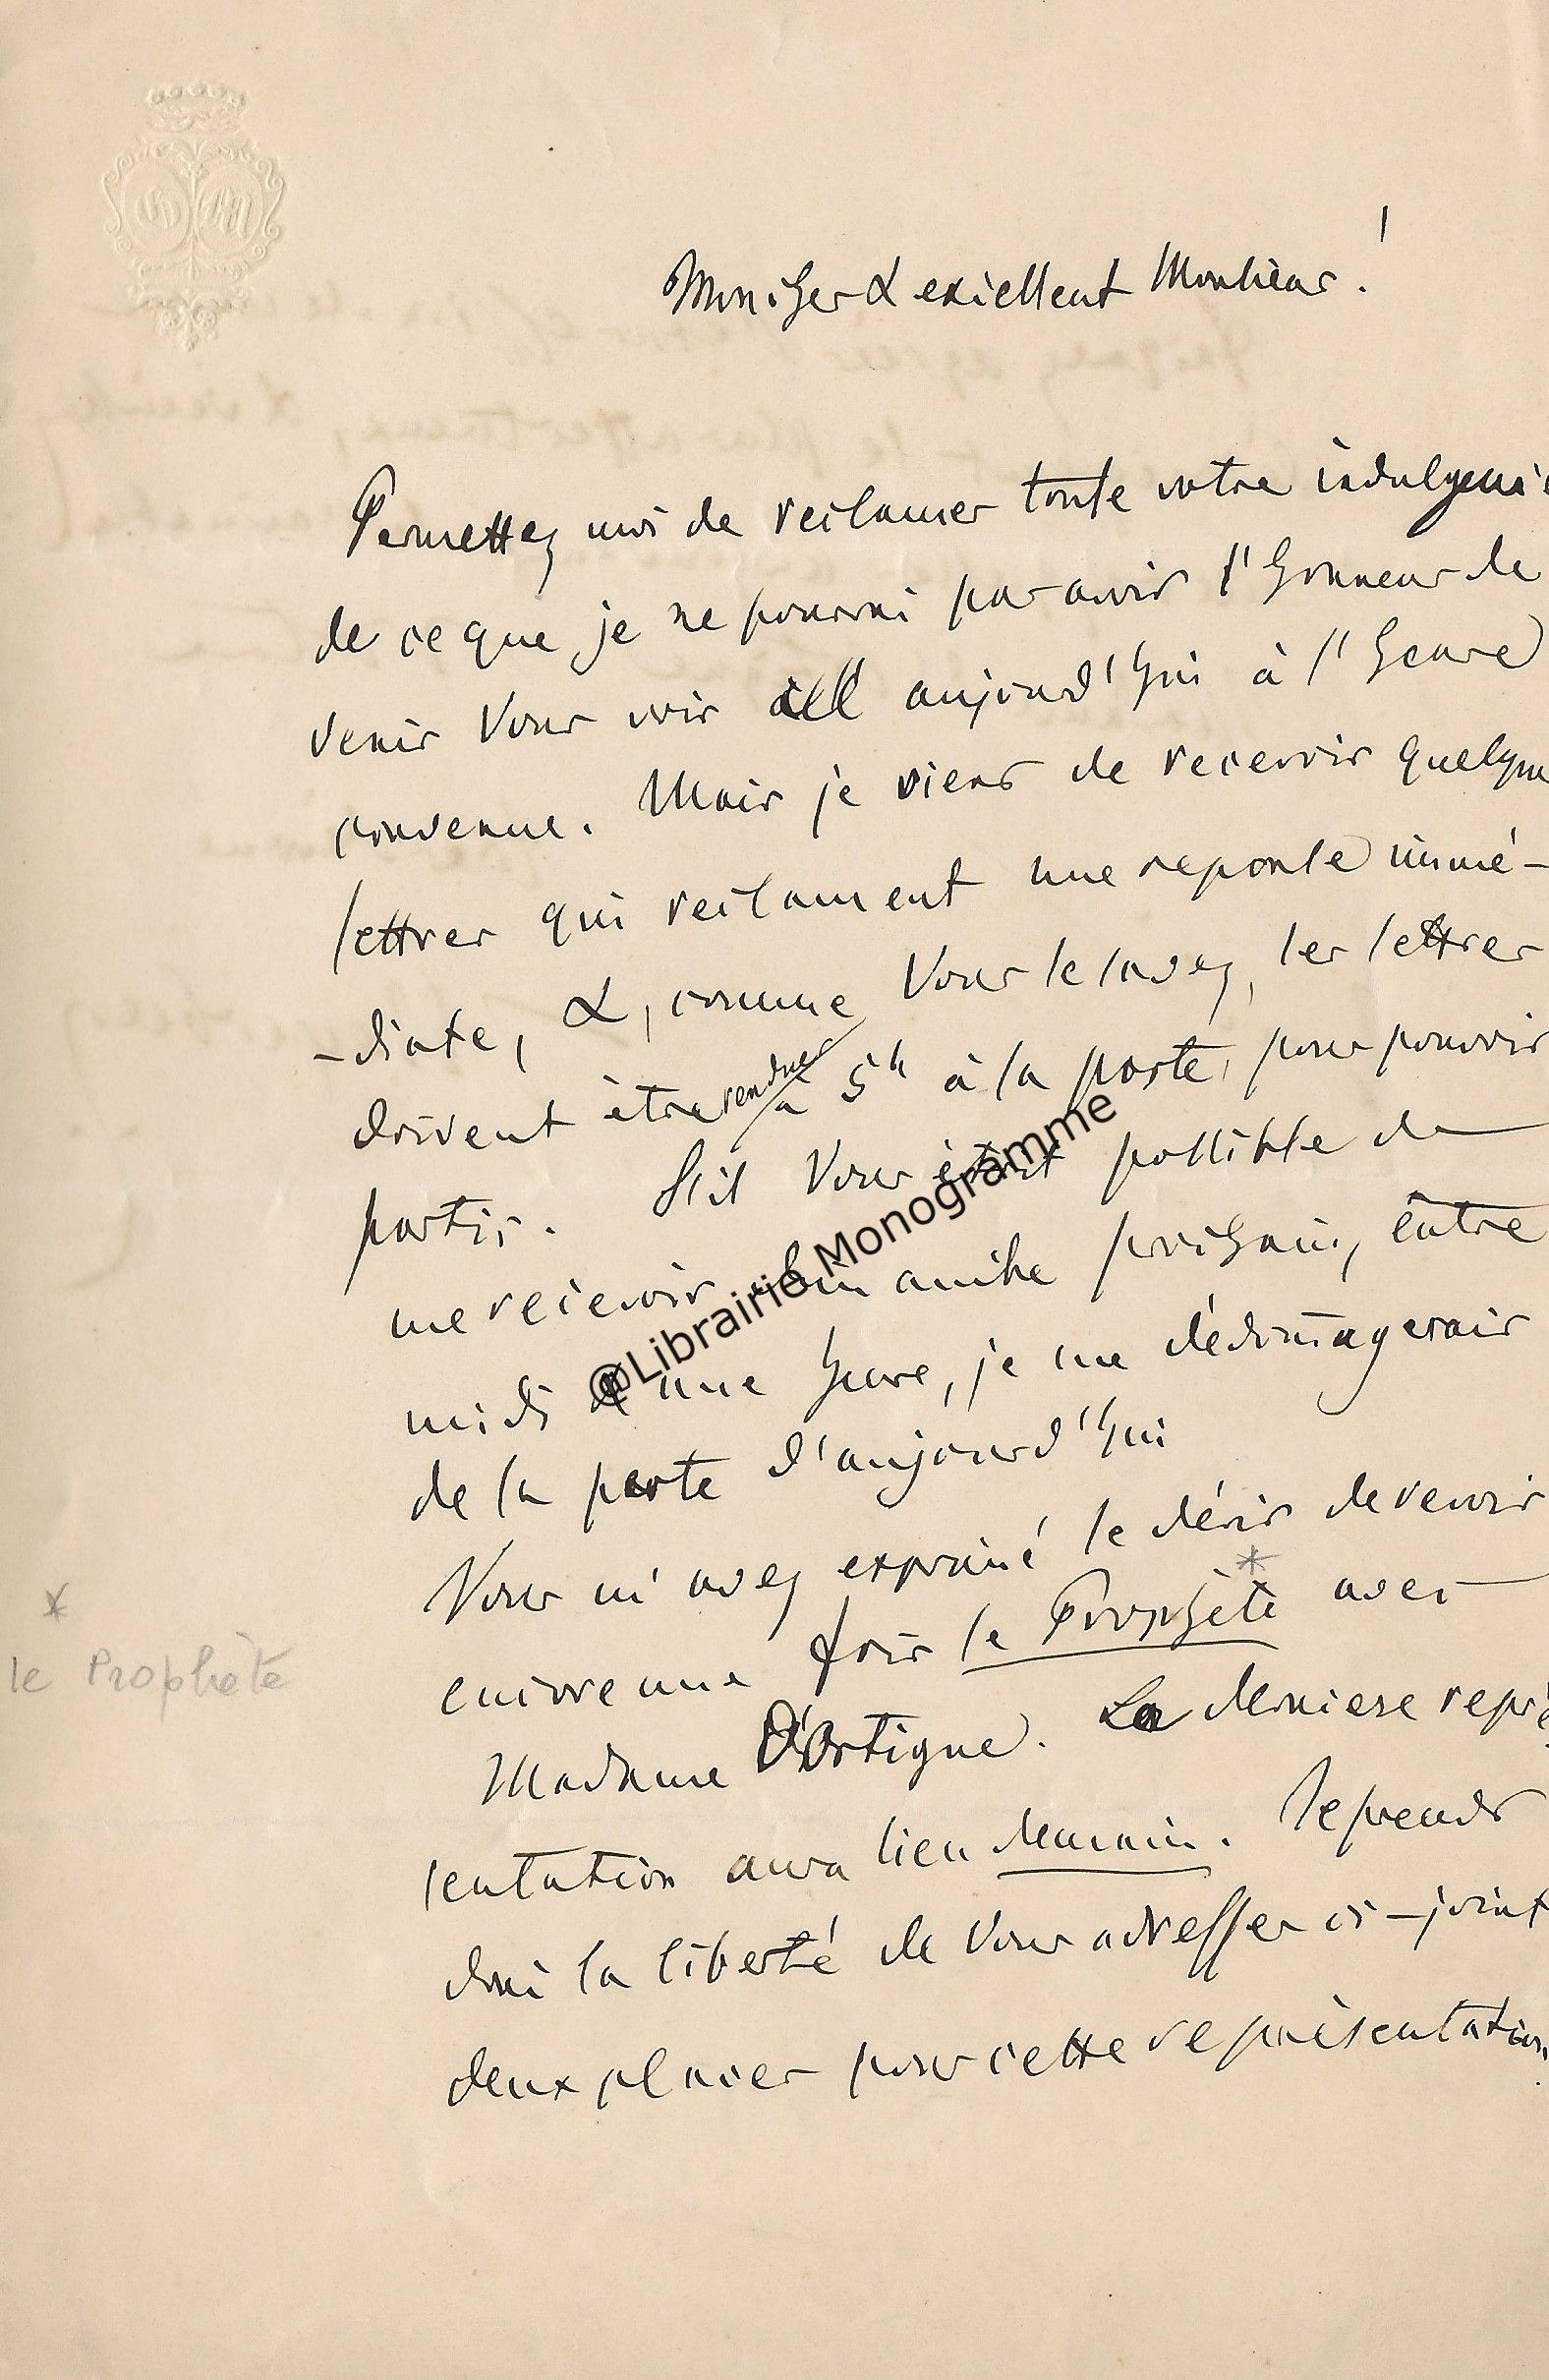 Mon cher & excellent Monsieur!
Permettez moi de reclamer toute votre indulgenc
de ce que je ne pourrai pas avoir l'honneur de
venir Vous voir aujourd'hui à l'heure
convenue. Mais je viens de recevoir quelque
lettres qui reclament une reponse immé-
-diate, &, comme Vous le savez, les lettres
doivent être rendues à 5h à la poste, pour pouvoir
partir. S'il Vous était possible de
me recevoir dimanche prochain, entre
midi & une heure, je me dédomagerais
de la perte d'aujourd'hui
Vous m'avez exprimé le désir de revoir
encore une fois le Prophète * avec
* le Prophète
Madame D'Ortigue. La derniere repré
sentation aura lieu demain. Je prends
donc la liberté de Vous adresser ci-joint
deux places pour cette représentation.
@Librairie Monogramme